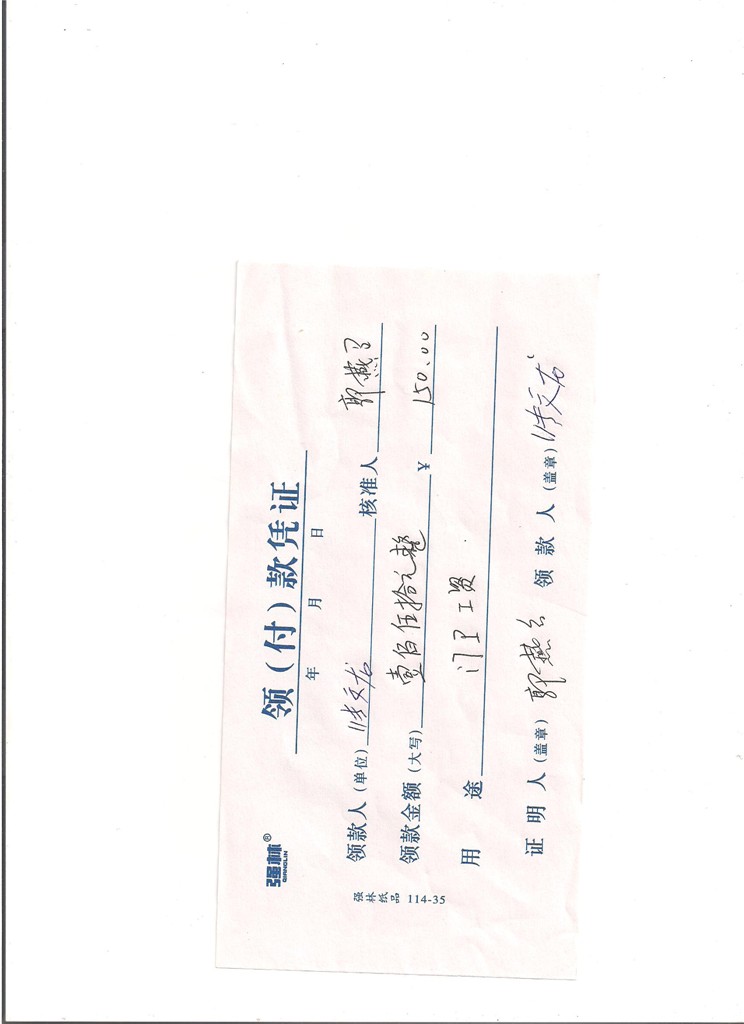 强林®
QIANGLIN
领(付)款凭证
年 月 日
领款人(单位) 张文龙 核准人 郭燕
领款金额(大写) 壹佰伍拾元整 ¥ 150.00
用 途 门卫工资
证 明 人(盖章) 郭燕 领 款 人(盖章) 张文龙
强林纸品 114-35